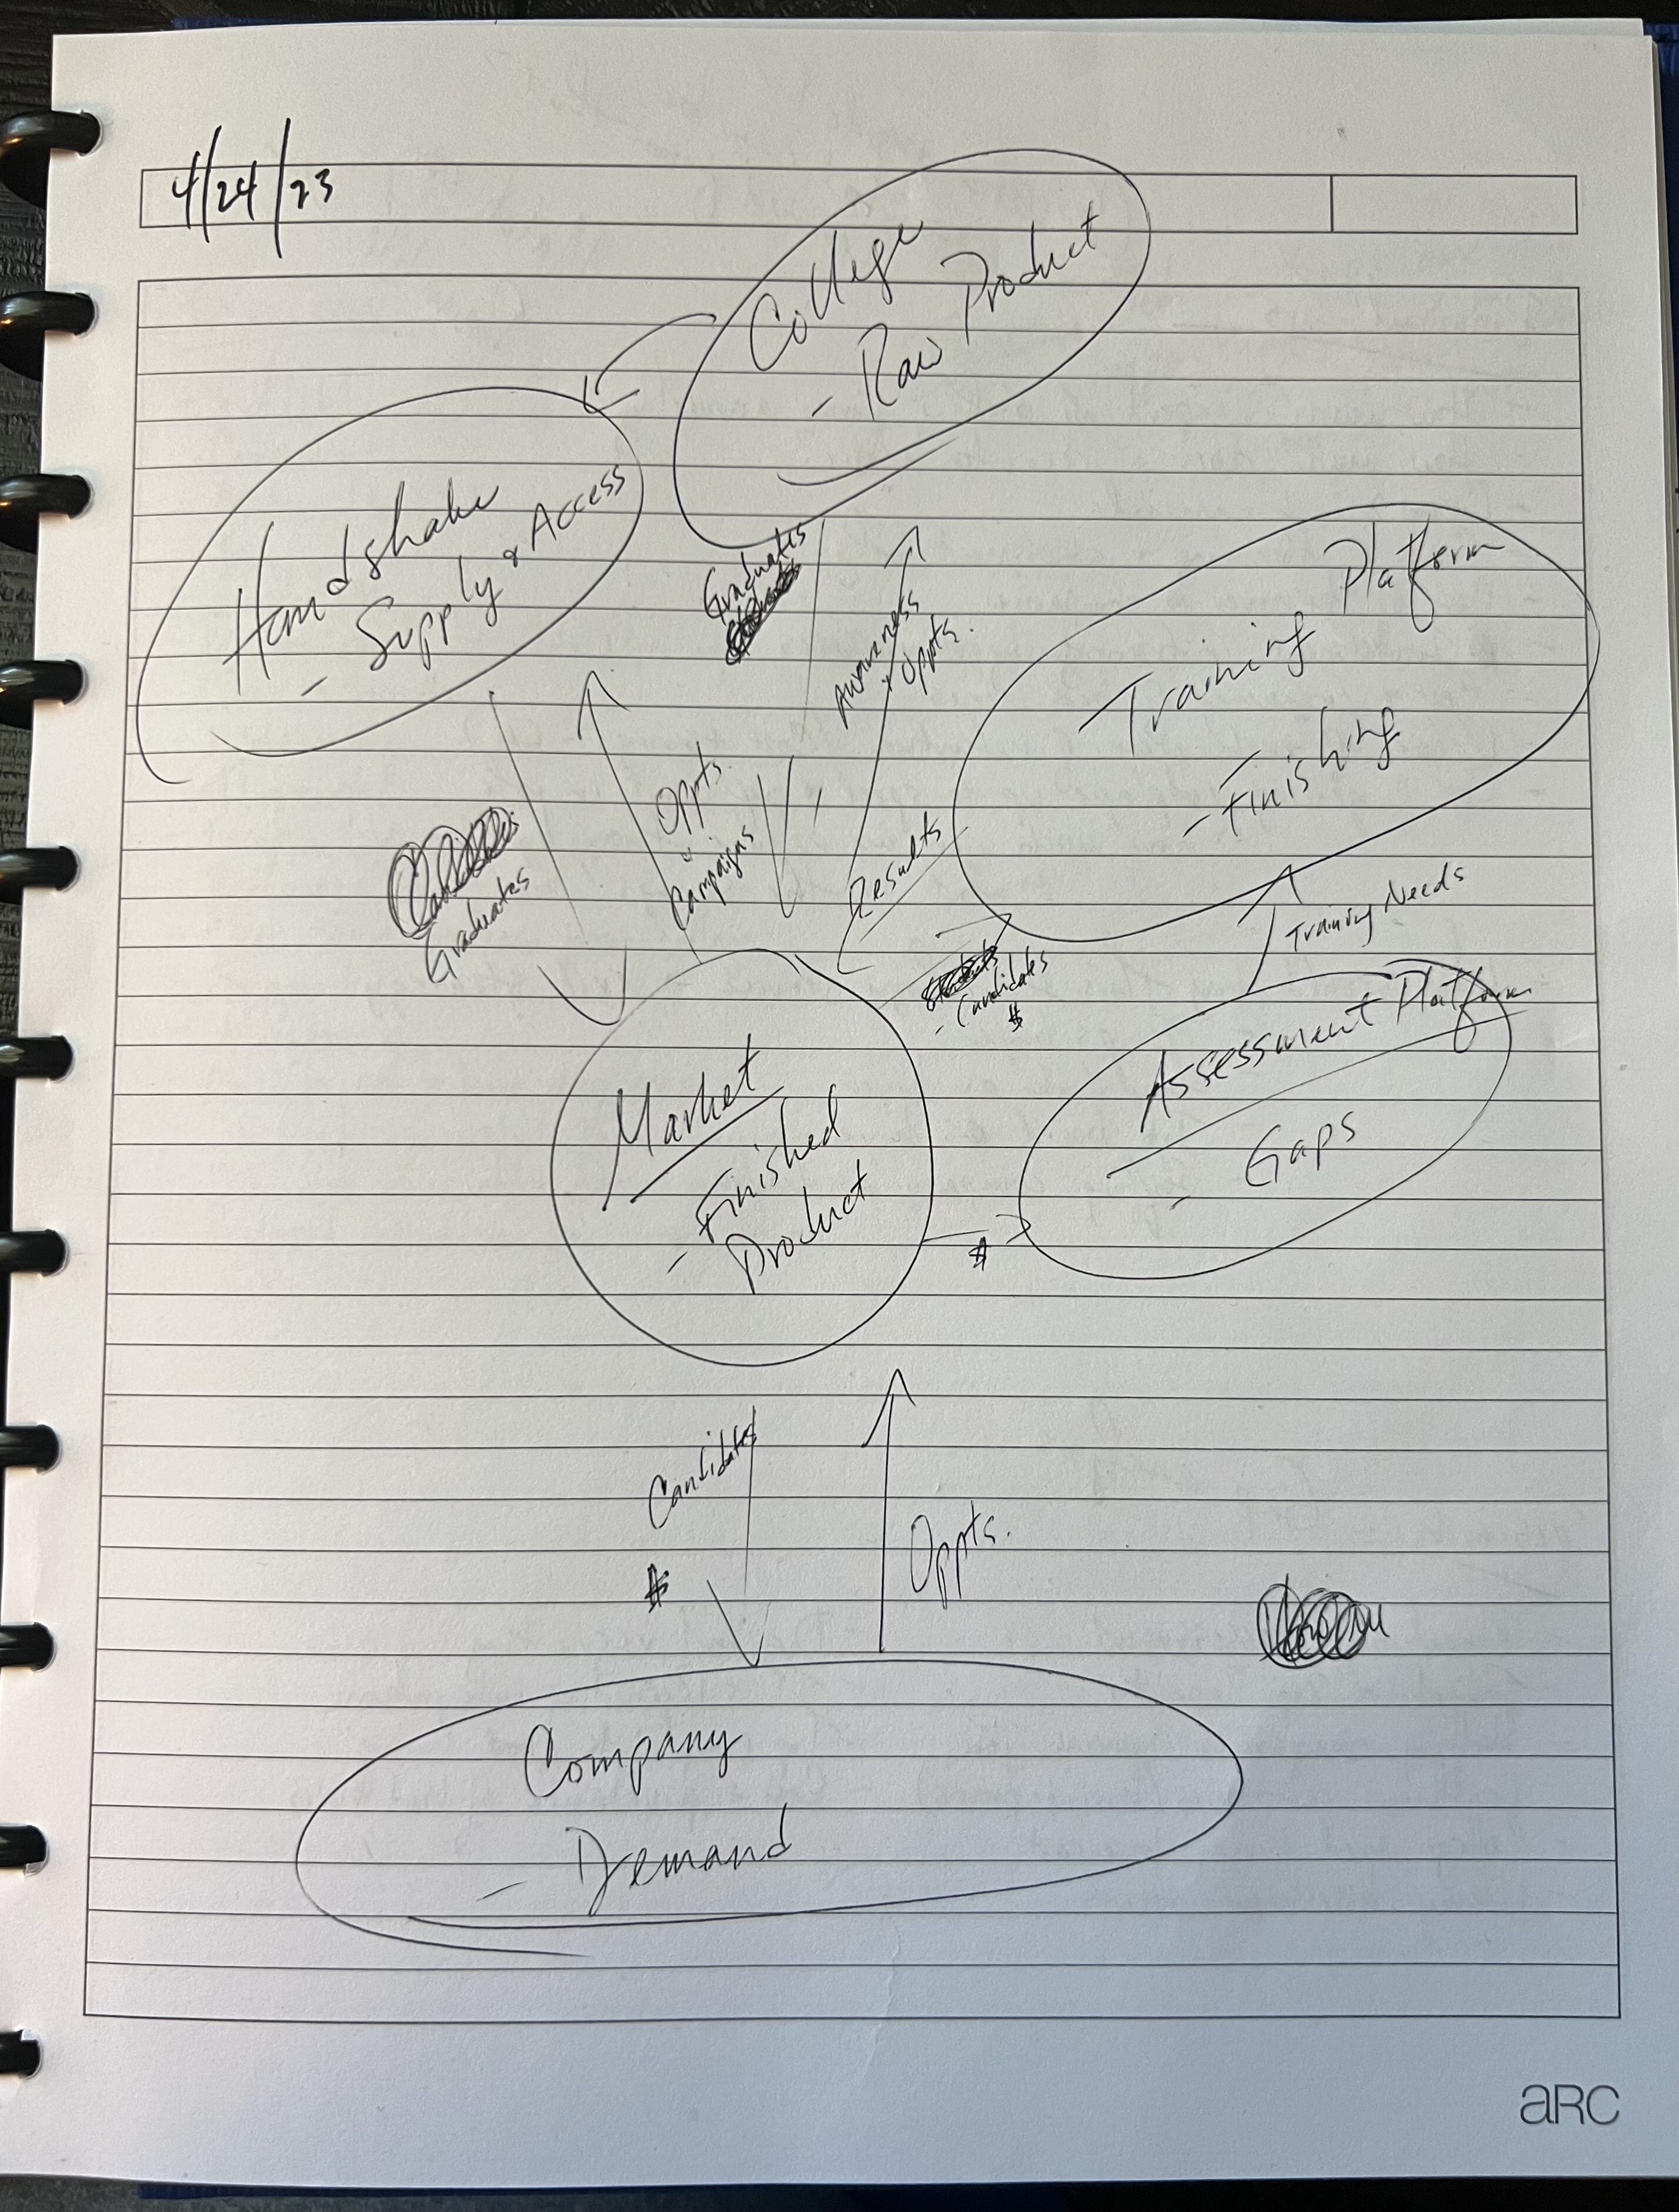 4/24/23
College
- Raw Product
Handshake
- Supply & Access
Graduates
Awareness
+ Oppts.
Training Platform
- Finishing
Oppts.
Campaigns
Graduates
Results
- Candidates
$
Training Needs
Assessment Platform
- Gaps
Market
- Finished
Product
$
Candidates
$
Oppts.
Company
- Demand
aRC